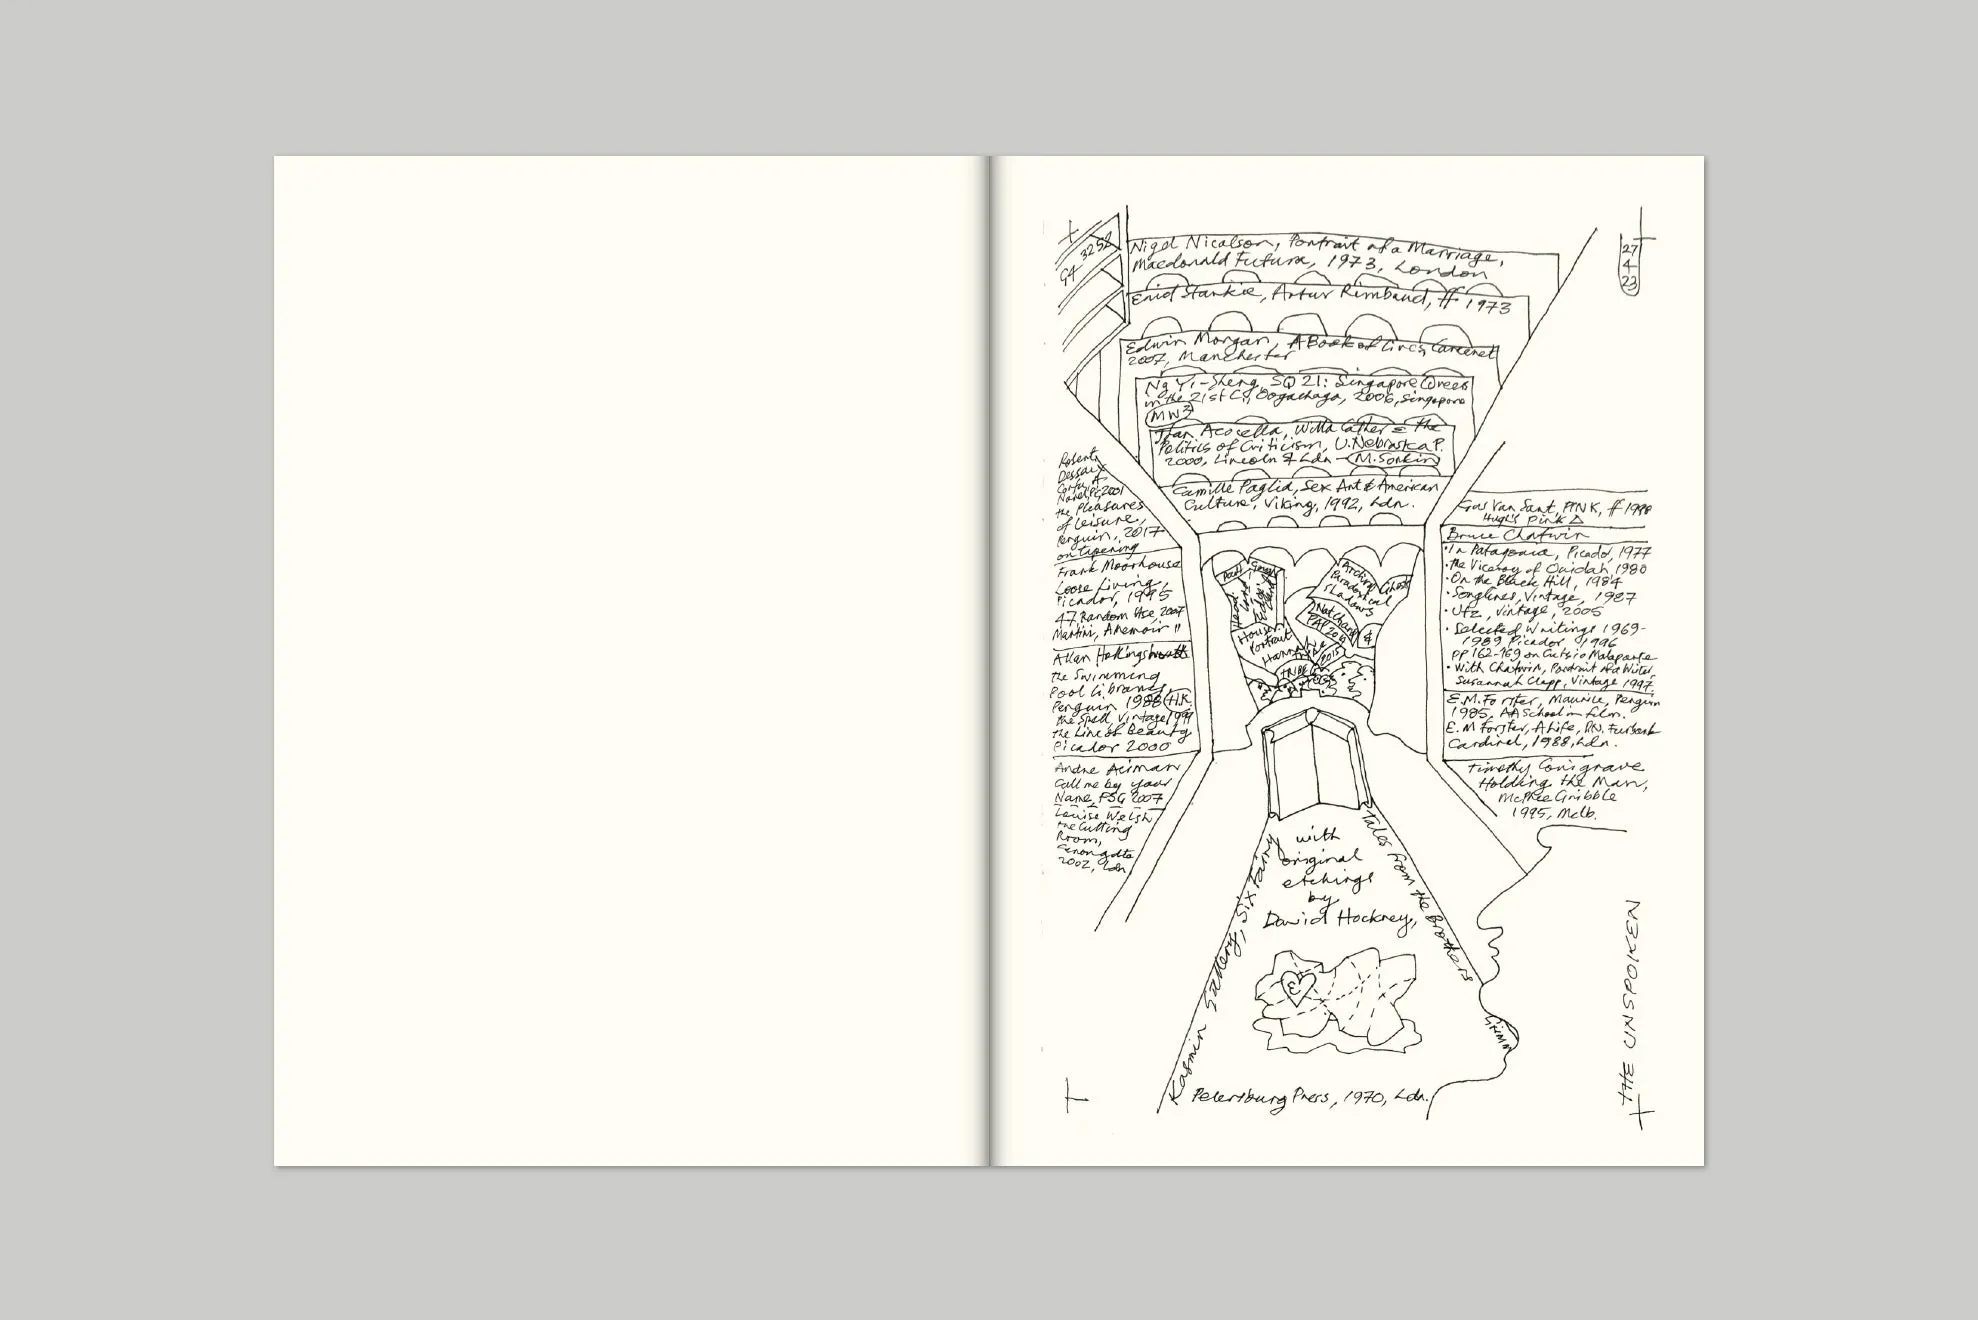 G4 3252
27
4
23
Nigel Nicolson, Portrait of a Marriage,
Macdonald Futura, 1973, London
Enid Starkie, Artur Rimbaud, ff 1973
Edwin Morgan, A Book of Lives, Carcanet
2007, Manchester
Ng Yi-Sheng, SQ 21: Singapore Queers
in the 21st C, Oogachaga, 2006, Singapore
MW3
Joan Acocella, Willa Cather & the
Politics of Criticism, U. Nebraska P.
2000, Lincoln & Ldn - M. Sonkin
Camille Paglia, Sex Art & American
Culture, Viking, 1992, Ldn.
Robert
Dessaix
Corfu, A
Novel, 2001
the Pleasures
of Leisure,
Penguin, 2017
on tipening
Frank Moorhouse
Loose Living,
Picador, 1995
47 Random Hse, 2007
Martini, A Memoir "
Allan Hollinghurst
the Swimming
Pool Library
Penguin 1988 H.K.
the Spell, Vintage 1999
the Line of Beauty
Picador 2000
Andre Aciman
Call me by your
Name, FSG 2007
Louise Welsh
the Cutting
Room,
Canongate
2002, Ldn
Gus Van Sant, PINK, ff 1998
Hugh's pink △
Bruce Chatwin
• In Patagonia, Picador, 1977
• the Viceroy of Ouidah 1980
• On the Black Hill, 1984
• Songlines, Vintage, 1987
• Utz, Vintage, 2005
• Selected Writings 1969-
1989 Picador 1996
pp 162-169 on Curtsio Malaparte
• With Chatwin, Portrait of a Writer,
Susannah Clapp, Vintage 1997.
E.M. Forster, Maurice, Penguin
1985, AA School in film.
E.M Forster, A Life, P.N. Furbank
Cardinal, 1988, Ldn.
Timothy Conigrave
Holding the Man,
McPhee Gribble
1995, Melb.
Archival
Paradoxical
Shadows
Ghost
House
Portrait
Hanna
TRIBE
&
2015
Kasmin Gallery, Six Fairy
Tales from the Brothers
Grimm
with
original
etchings
by
David Hockney,
Petersburg Press, 1970, Ldn.
THE UNSPOKEN